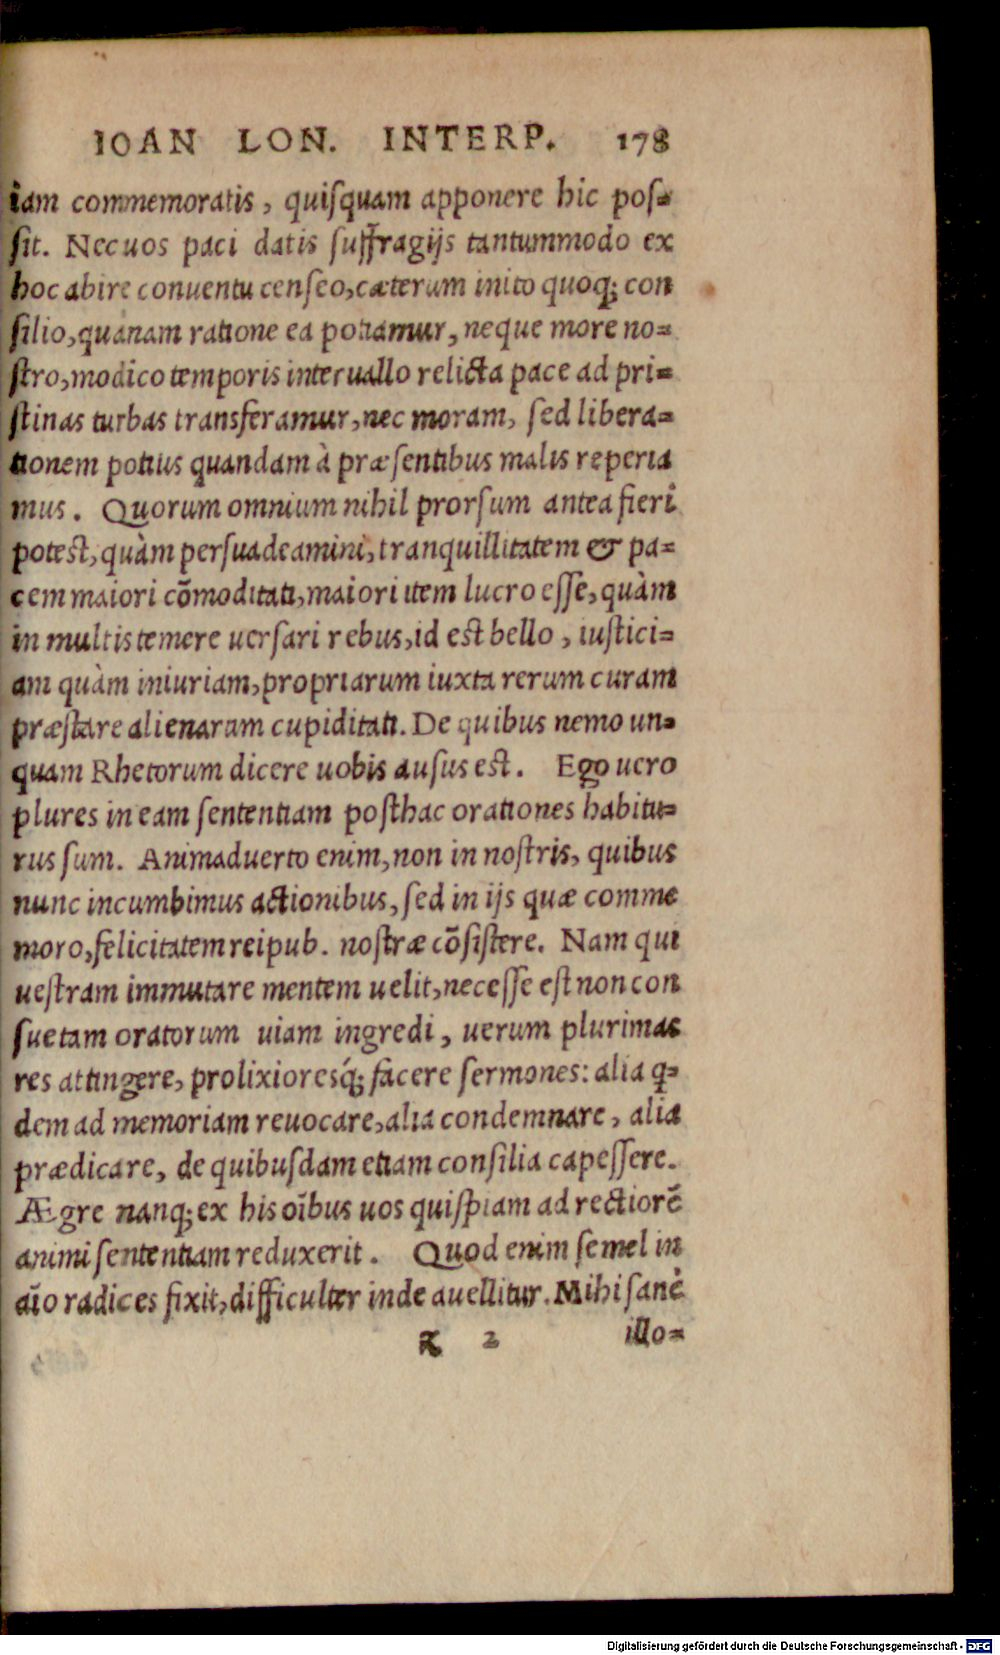 IOAN LON. INTERP. 178
iam commemoratis, quiſquam apponere hic poſ=
ſit. Nec uos paci datis ſuffragijs tantummodo ex
hoc abire conuentu cenſeo, cæterum inito quoq; con
ſilio, quánam ratione ea potiamur, neque more no=
ſtro, modico temporis interuallo relicta pace ad pri=
ſtinas turbas transferamur, nec moram, ſed libera=
tionem potius quandam à præſentibus malis reperia
mus. Quorum omnium nihil prorſum antea fieri
poteſt, quàm perſuadeamini, tranquillitatem & pa=
cem maiori cõmoditati, maiori item lucro eſſe, quàm
in multis temere uerſari rebus, id eſt bello, iuſtici=
am quàm iniuriam, propriarum iuxta rerum curam
præſtare alienarum cupiditati. De quibus nemo un=
quam Rhetorum dicere uobis auſus eſt. Ego uero
plures in eam ſententiam poſthac orationes habitu=
rus ſum. Animaduerto enim, non in noſtris, quibus
nunc incumbimus actionibus, ſed in ijs quæ comme
moro, felicitatem reipub. noſtræ cõſiſtere. Nam qui
ueſtram immutare mentem uelit, neceſſe eſt non con
ſuetam oratorum uiam ingredi, uerum plurimas
res attingere, prolixioresq́; facere ſermones: alia q=
dem ad memoriam reuocare, alia condemnare, alia
prædicare, de quibuſdam etiam conſilia capeſſere.
Ægre nanq; ex his oĩbus uos quiſpiam ad rectiorẽ
animi ſententiam reduxerit. Quod enim ſemel in
aĩo radices fixit, difficulter inde auellitur. Mihi ſanè
z 2 illo=
Digitalisierung gefördert durch die Deutsche Forschungsgemeinschaft - DFG